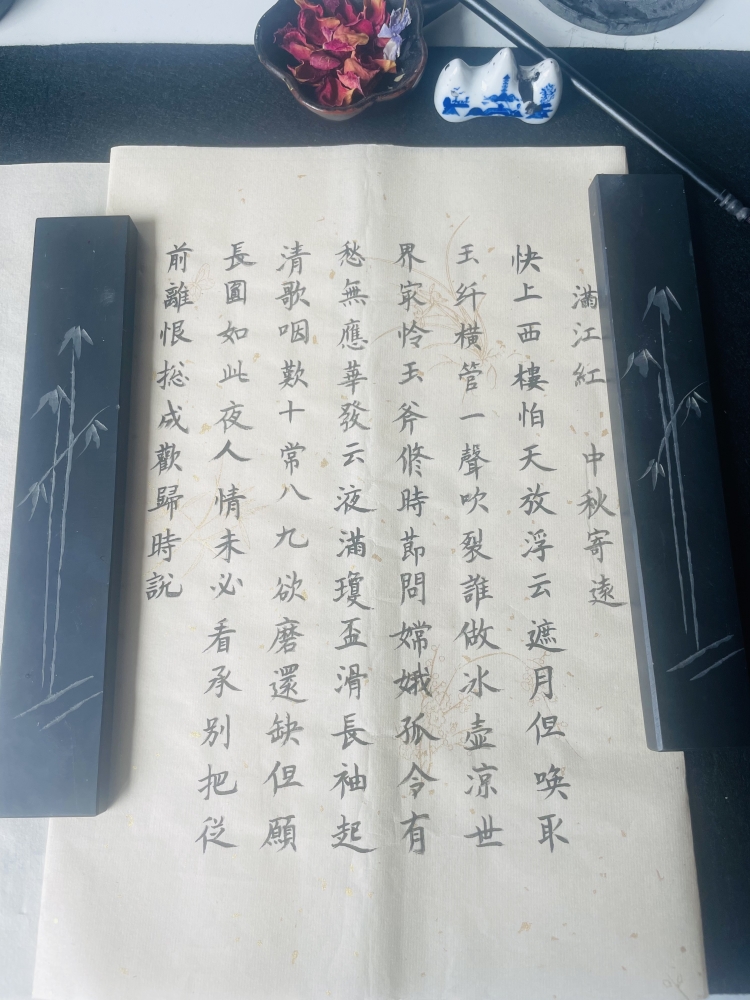 滿江紅 中秋寄遠
快上西樓怕天放浮云遮月但喚取
玉纤橫管一聲吹裂誰做冰壺涼世
界冣怜玉斧脩時莭問嫦娥孤令有
愁無應華發云液滿瓊盃滑長袖起
清歌咽歎十常八九欲磨還缺但願
長圎如此夜人情未必看承別把從
前離恨捴成歡歸時說